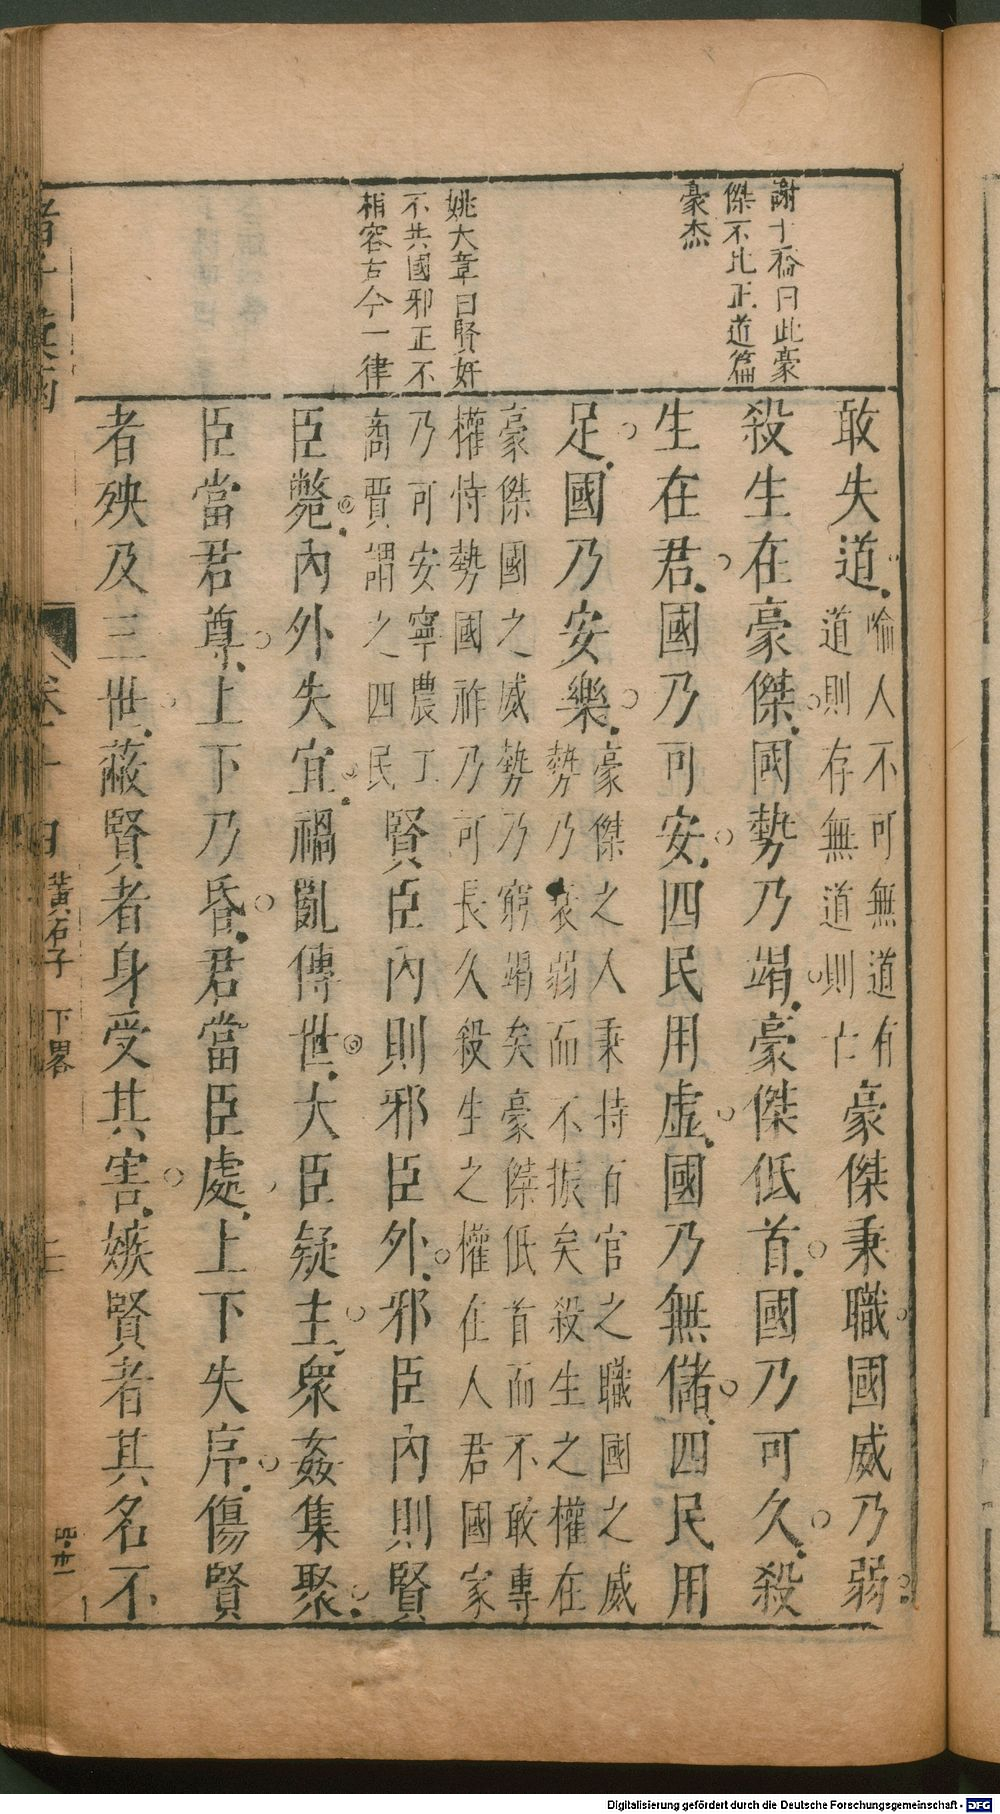 謝十喬曰此豪
傑不比正道篇
豪杰
姚大章曰賢奸
不共國邪正不
相容古今一律
敢失道喻人不可無道有
道則存無道則亡豪傑秉職國威乃弱
殺生在豪傑國勢乃竭豪傑低首國乃可久殺
生在君國乃可安四民用虛國乃無儲四民用
足國乃安樂豪傑之人秉持百官之職國之威
勢乃衰弱而不振矣殺生之權在
豪傑國之威勢乃窮竭矣豪傑低首而不敢專
權恃勢國祚乃可長久殺生之權在人君國家
乃可安寧農工
商賈謂之四民賢臣內則邪臣外邪臣內則賢
臣斃內外失宜禍亂傳世大臣疑主衆姦集聚
臣當君尊上下乃昏君當臣處上下失序傷賢
者殃及三世蔽賢者身受其害嫉賢者其名不
黃石子 下畧
Digitalisierung gefördert durch die Deutsche Forschungsgemeinschaft - DFG